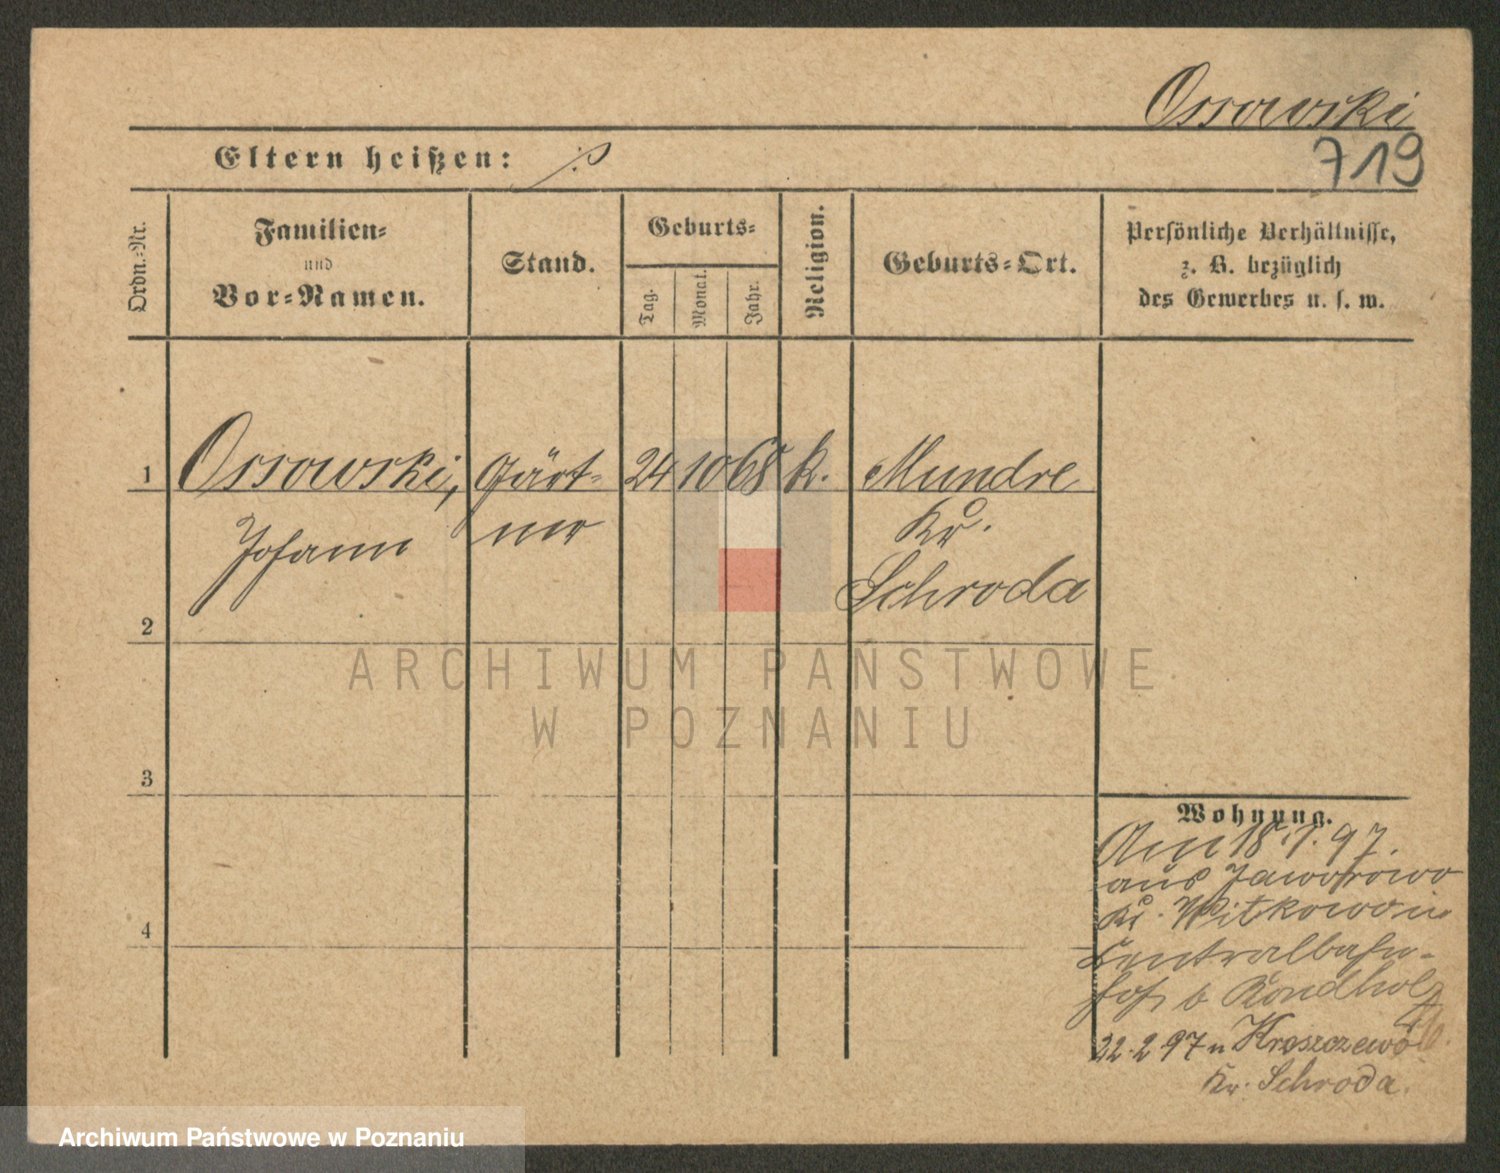 Ossowski
719
Eltern heißen: ;
Ordn.-Nr.
Familien-
und
Vor-Namen.
Stand.
Geburts-
Tag.
Monat.
Jahr.
Religion.
Geburts-Ort.
Persönliche Verhältnisse,
z. B. bezüglich
des Gewerbes u. s. w.
1 Ossowski, Gärt- 24 10 68 k. Mundre
Johann ner Kr.
Schroda
2
3
4
Wohnung.
Am 18.1.97.
aus Jaworowo
Kr. Witkowo in
Centralbahn-
hof b
22.2.97 n Kroszczewo
Kr. Schroda.
ARCHIWUM PAŃSTWOWE
W POZNANIU
Archiwum Państwowe w Poznaniu